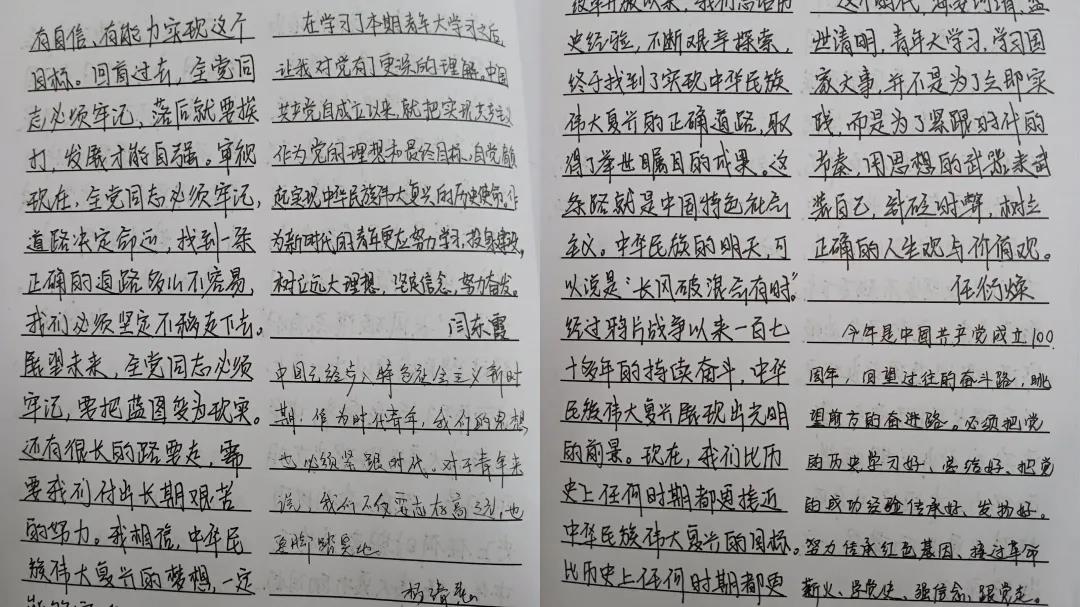 有自信、有能力实现这个
目标。回首过去，全党同
志必须牢记，落后就要挨
打，发展才能自强。审视
现在，全党同志必须牢记，
道路决定命运，找到一条
正确的道路多么不容易，
我们必须坚定不移走下去。
展望未来，全党同志必须
牢记，要把蓝图变为现实。
还有很长的路要走，需
要我们付出长期艰苦
的努力。我相信，中华民
族伟大复兴的梦想，一定
在学习了本期青年大学习之后，
让我对党有了更深的理解，中国
共产党自成立以来，就把实现共产主义
作为党的理想和最终目标，自觉肩
起实现中华民族伟大复兴的历史使命。作
为新时代的青年更应努力学习，投身建设，
树立远大理想，坚定信念，努力奋发。
闫东霞
中国已经步入特色社会主义新时
期，作为时代青年，我们的思想
也必须紧跟时代。对于青年来
说，我们不仅要志存高远，也
要脚踏实地
杨
改革开放以来，我们总结历
史经验，不断艰辛探索，
终于找到了实现中华民族
伟大复兴的正确道路，取
得了举世瞩目的成果。这
条路就是中国特色社会
主义。中华民族的明天，可
以说是“长风破浪会有时”。
经过鸦片战争以来一百七
十多年的持续奋斗，中华
民族伟大复兴展现出光明
的前景。现在，我们比历
史上任何时期都更接近
中华民族伟大复兴的目标。
比历史上任何时期都更
这个时代，海晏河清，盛
世清明，青年大学习，学习国
家大事，并不是为了立即实
践，而是为了紧跟时代的
节奏，用思想的武器来武
装自己，针砭时弊，树立
正确的人生观与价值观。
任衍焕
今年是中国共产党成立100
周年，回望过往的奋斗路，眺
望前方的奋进路。必须把党
的历史学习好、总结好，把党
的成功经验传承好、发扬好。
努力传承红色基因、接过革命
薪火、学党史、强信念、跟党走。